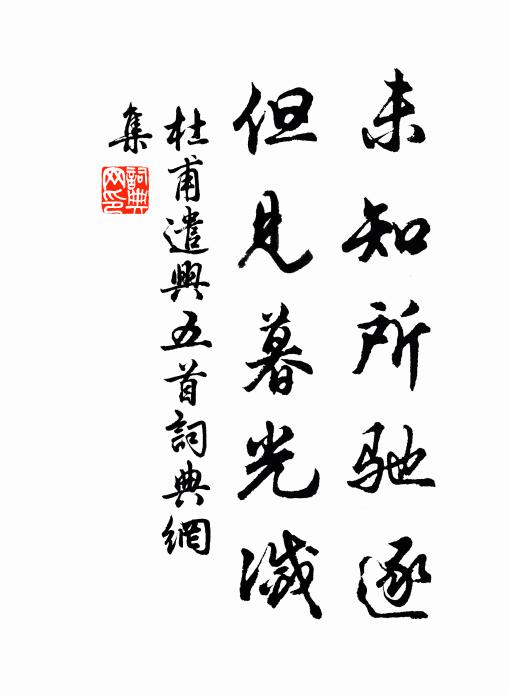 未知所驰逐
但見暮光滅
杜甫遣興五首詞典網
集
詞典网印